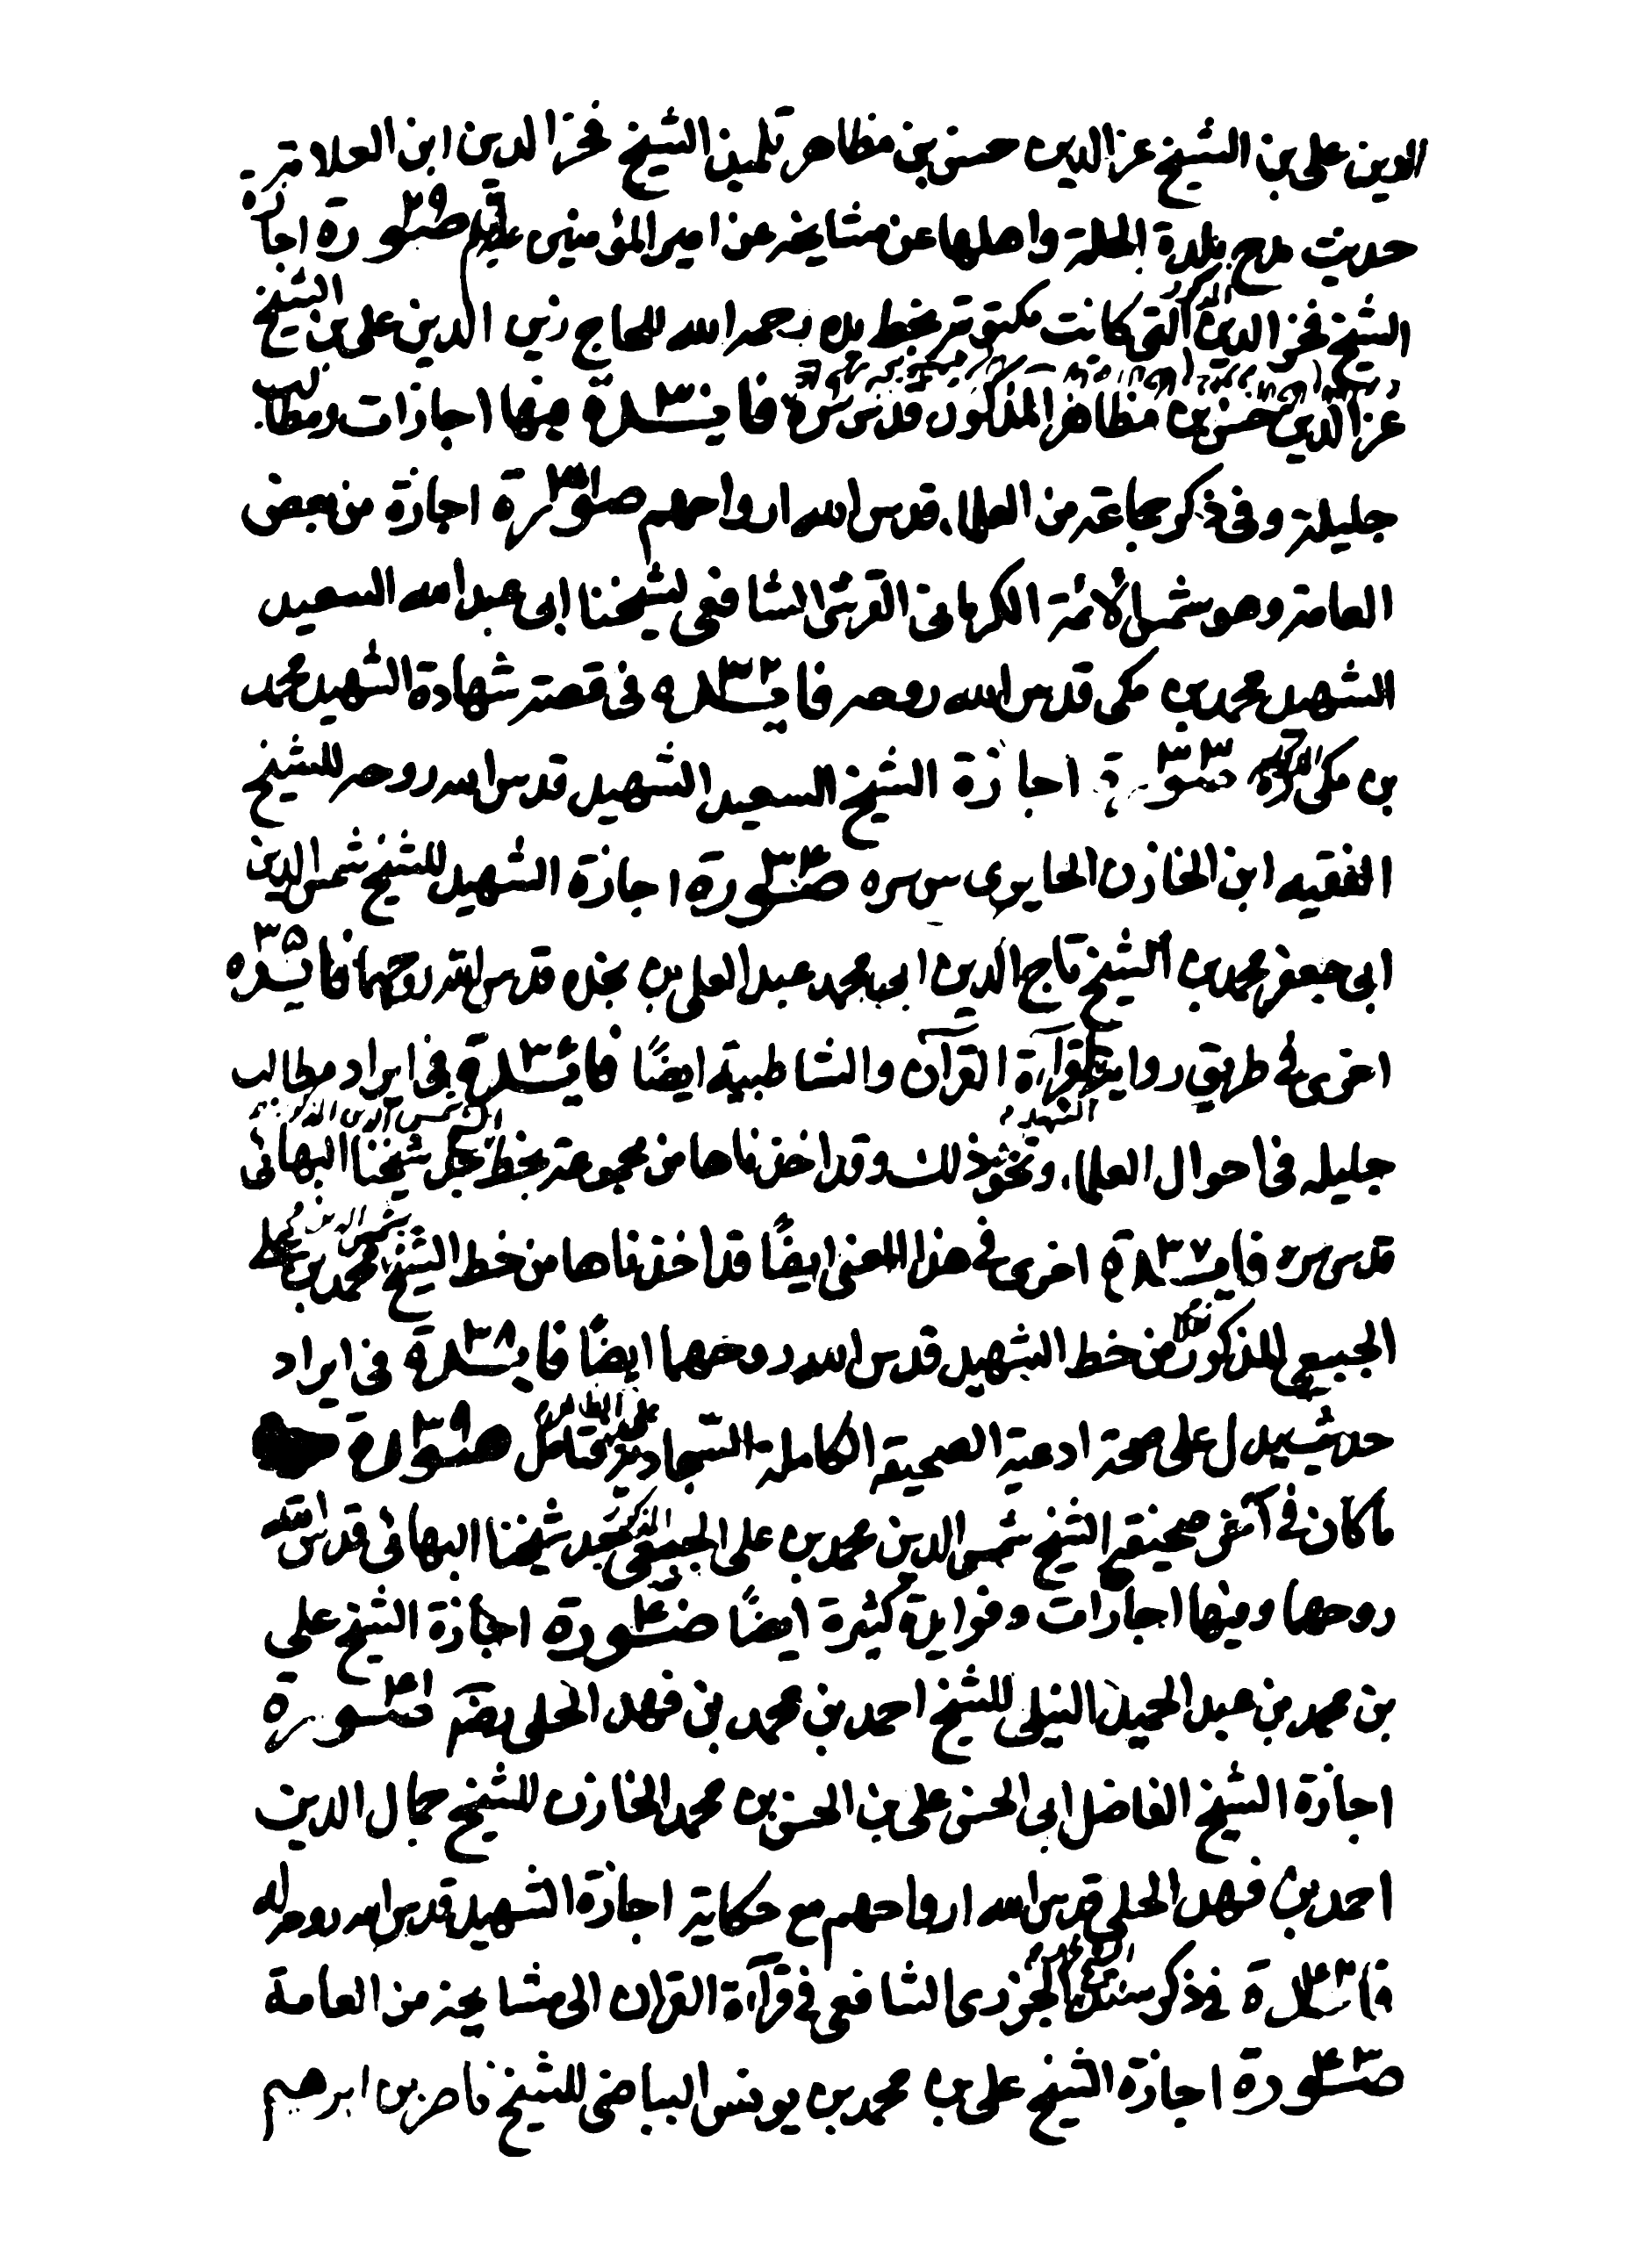 الدين على بن الشيخ عز الدين حسن بن مظاهر تلميذ الشيخ فخر الدين ابن العلامة
حديث مدح بلدة الحلة واهلها عن مشايخه عن امير المؤمنين عليه صورة ٢٩ اجازة
الشيخ فخر الدين المذكور التى كانت مكتوبة بخط يده رحمه الله للحاج زين الدين على بن الشيخ
عز الدين حسن بن مظاهر المذكور قدس سره فايدة ٣٠ فيها اجازات ومطالب
جليلة وفى ذكر جماعة من العلماء قدس الله ارواحهم صورة ٣١ اجازة من بعض
العامة وهو شمس الأئمة الكرمانى القرشى الشافعى لشيخنا ابى عبد الله السعيد
الشهيد محمد بن مكى قدس الله روحه فايدة ٣٢ فى قصة شهادة الشهيد محمد
بن مكى صورة ٣٣ اجازة الشيخ السعيد الشهيد قدس الله روحه للشيخ
الفقيه ابن الخازن الحايرى س سره صورة ٣٤ اجازة الشهيد للشيخ شمس الدين
ابى جعفر محمد بن الشيخ تاج الدين ابى محمد عبد العلى بن نجده قدس الله روحهما فايدة ٣٥
اخرى فى طريق رواية الشهيد لقراءة القرآن والشاطبية ايضًا فايدة ٣٦ فى ايراد مطالب
جليله فى احوال العلماء ونحو ذلك وقد اخذناها من مجموعة بخط الشيخ شمس الدين جد شيخنا البهائى
قدس سره فايدة ٣٧ اخرى فى هذا المعنى ايضًا قد اخذناها من خط الشيخ شمس الدين محمد بن على
الجبعى المذكور نقلا من خط الشهيد قدس الله روحهما ايضًا فايدة ٣٨ فى ايراد
حديث يدل على صحة ادعية الصحيفة الكاملة السجادية فتامل صورة ٣٩
ما كان فى آخر صحيفة الشيخ شمس الدين محمد بن على الجبعى المذكور جد شيخنا البهائى قدس الله
روحهما وفيها اجازات وفوايد كثيرة ايضًا صورة ٤٠ اجازة الشيخ على
بن محمد بن عبد الحميد النيلى للشيخ احمد بن محمد بن فهد الحلى رضى صورة ٤١
اجازة الشيخ الفاضل ابى الحسن على بن الحسن بن محمد الخازن للشيخ جمال الدين
احمد بن فهد الحلى قدس الله ارواحهم مع حكاية اجازة الشهيد قدس الله روحه له
فايدة ٤٢ فى ذكر سند الجزرى الشافعى فى قرآءة القران الى مشايخه من العامة
صورة ٤٣ اجازة الشيخ على بن محمد بن يونس البياضى للشيخ ناصر بن ابرهيم